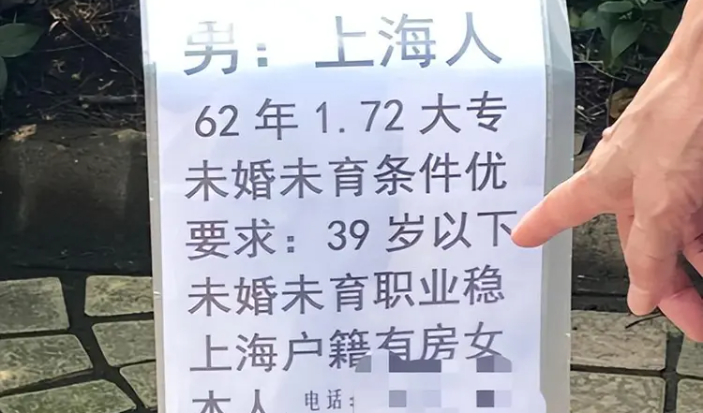 男：上海人
62年1.72大专
未婚未育条件优
要求：39岁以下
未婚未育职业稳
上海户籍有房女
本人 电话：